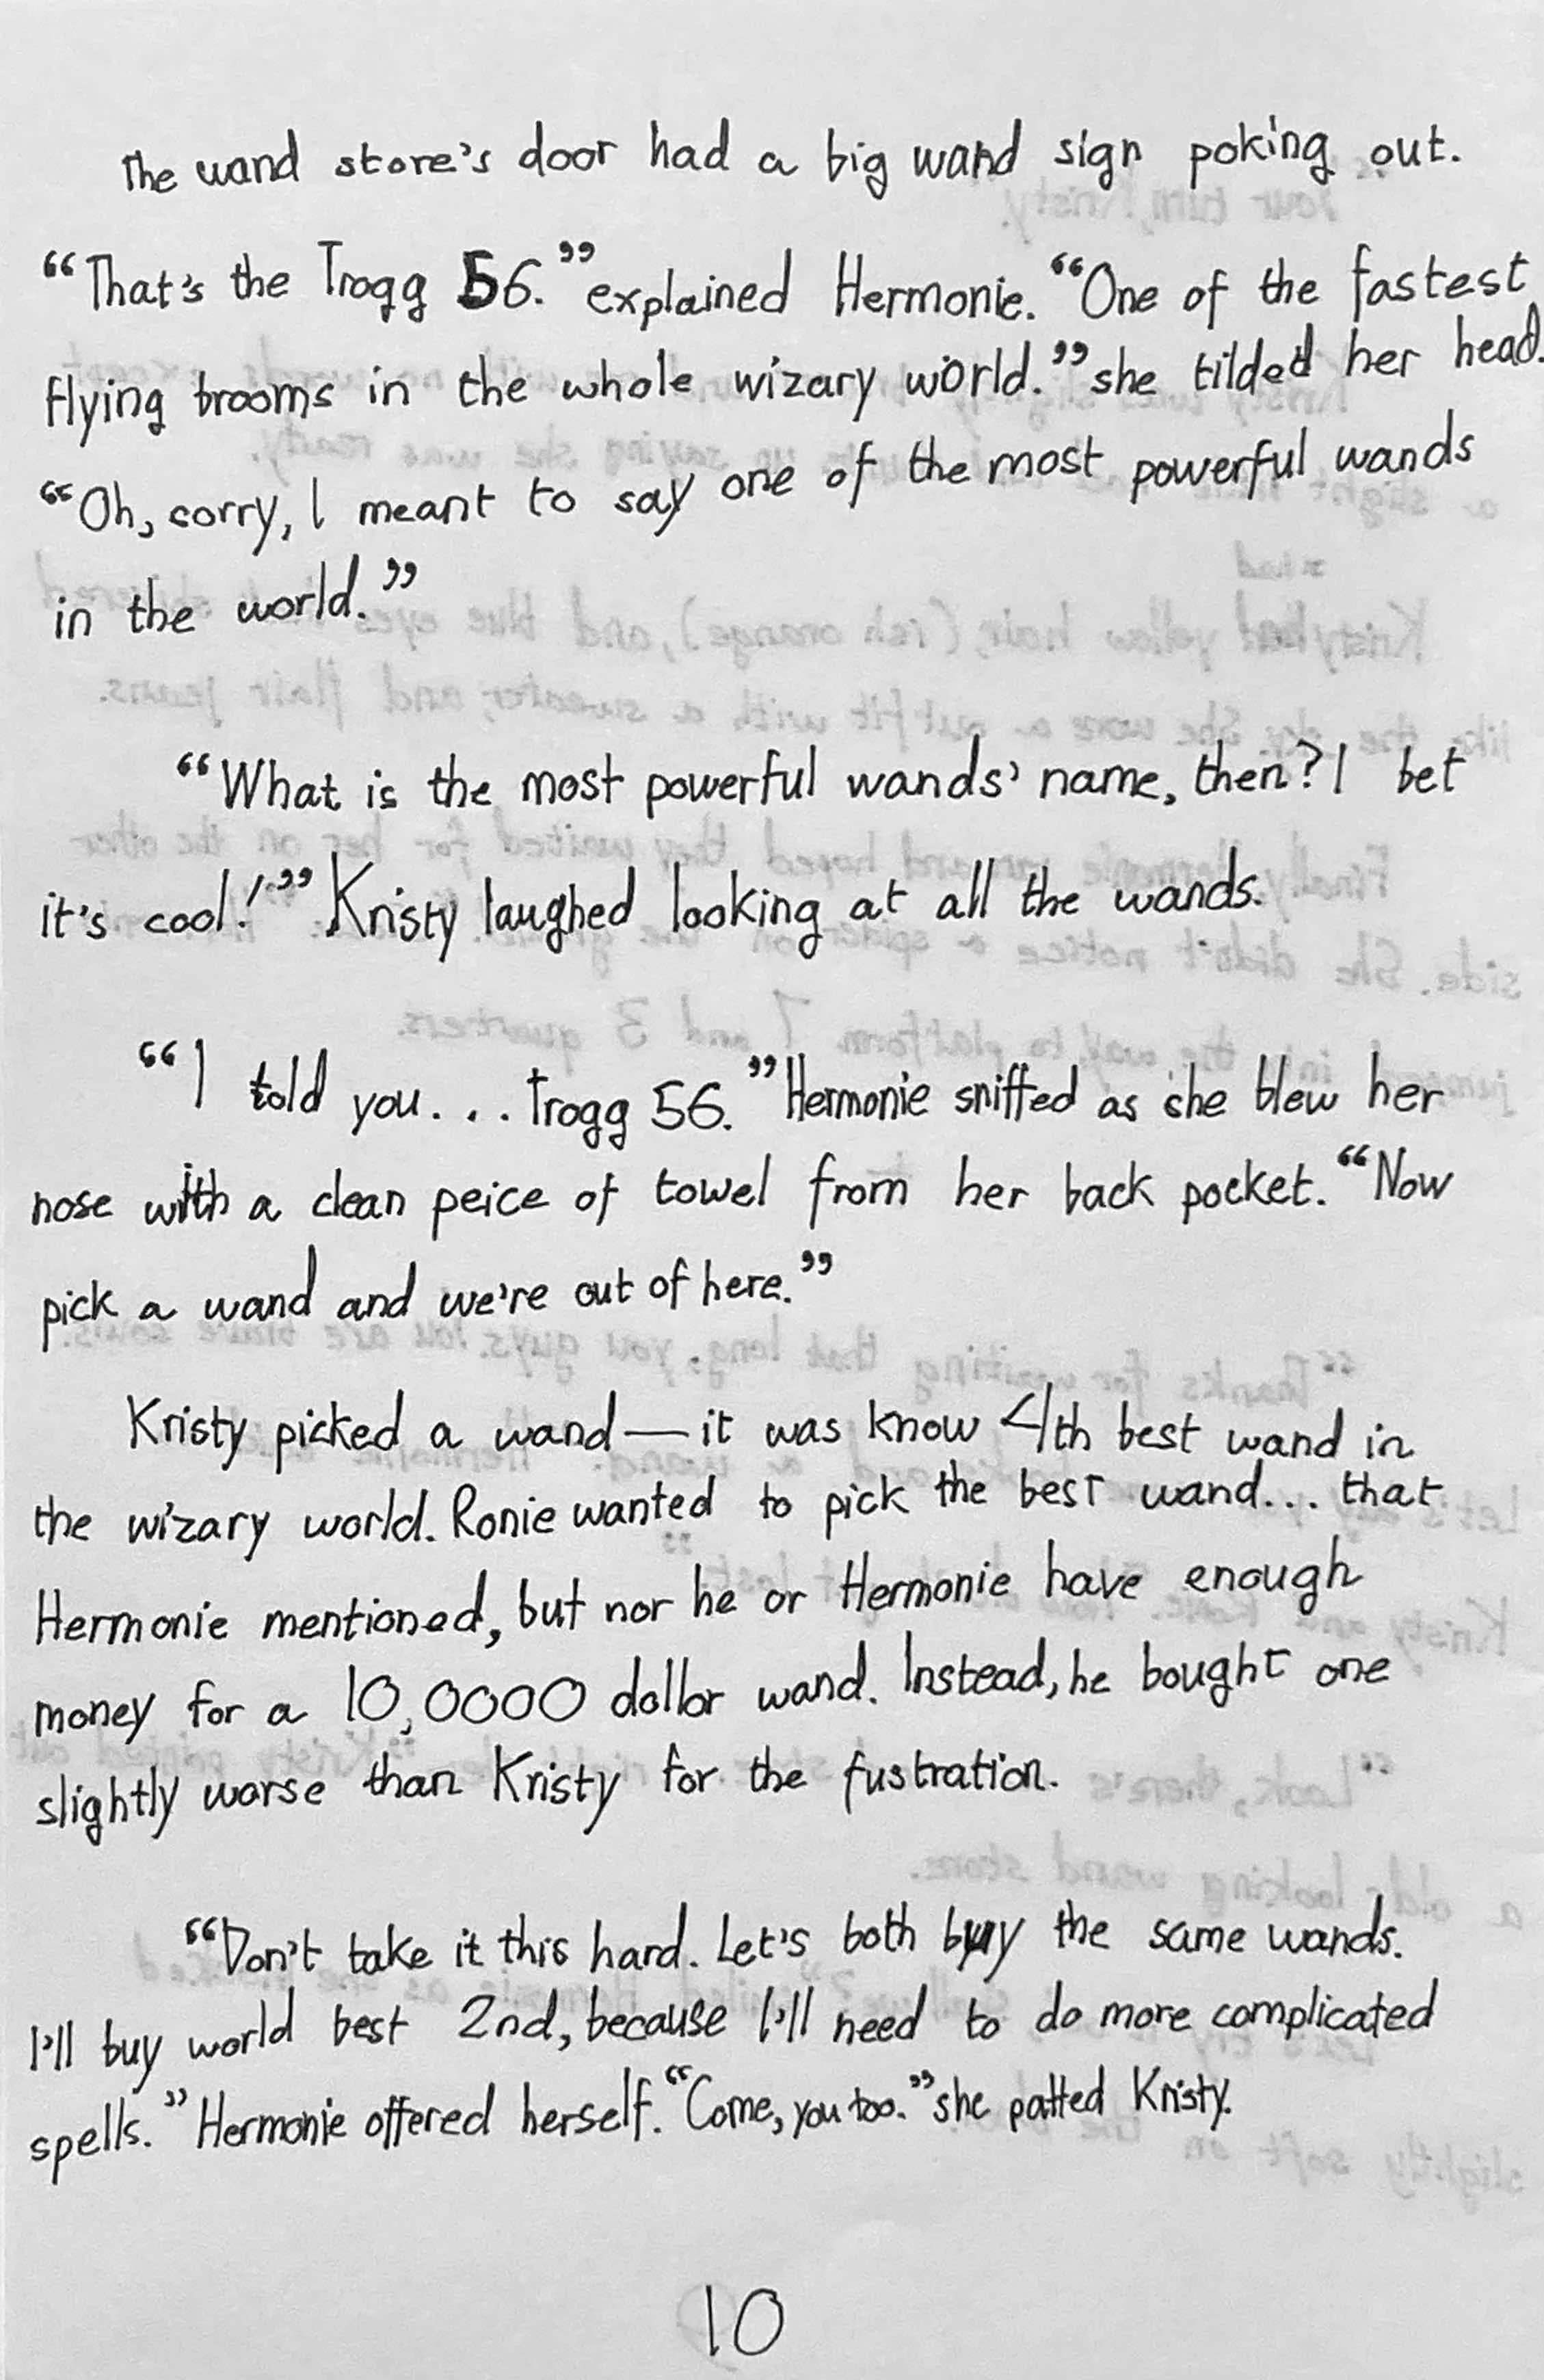 The wand store's door had a big wand sign poking out.
“That's the Trogg 56.” explained Hermonie. “One of the fastest
flying brooms in the whole wizary world.” she tilded her head.
“Oh, sorry, I meant to say one of the most powerful wands
in the world.”
“What is the most powerful wands' name, then? I bet
it's cool!” Kristy laughed looking at all the wands.
“I told you... Trogg 56.” Hermonie sniffed as she blew her
nose with a clean peice of towel from her back pocket. “Now
pick a wand and we're out of here.”
Kristy picked a wand — it was know 4th best wand in
the wizary world. Ronie wanted to pick the best wand... that
Hermonie mentioned, but nor he or Hermonie have enough
money for a 10,0000 dollar wand. Instead, he bought one
slightly worse than Kristy for the fustration.
“Don't take it this hard. Let's both buy the same wands.
I'll buy world best 2nd, because I'll need to do more complicated
spells.” Hermonie offered herself. “Come, you too.” she patted Kristy.
10